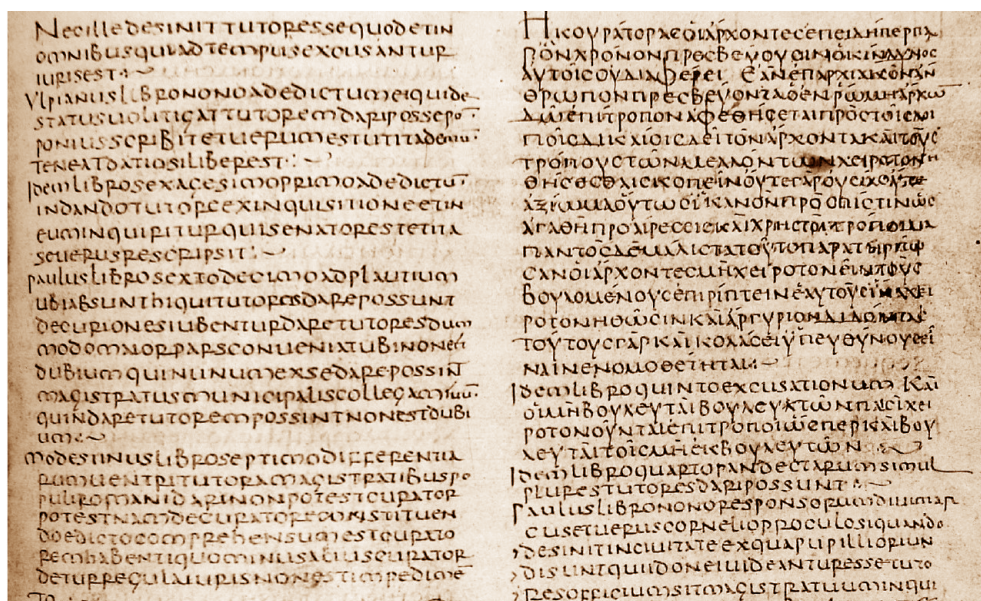 Necilledesinittutoressequodetin
omnibusquiadtempusexcusantur
iurisest
Ulpianuslibrononoadedictumeiquide
statusuolitigattutoremdariposse po
poniusscribitetuerumestutitademu
teneatdatiosiliberest
Idemlibrosexagesimoprimoadedictu
indandotutorexinquisitioneetin
euminquiriturquisenatorestetita
seuerusrescripsit
pauluslibrosextodecimoadplautium
ubiabsunthiquitutoresdarepossunt
decurionesiubenturdaretutoresdum
modomaiorparsconueniatubinone
dubiumquinunumexsedarepossint
magistratusmunicipaliscollegamsuu
quindaretutorempossintnonestdubi
um
modestinuslibroseptimodifferentia
rumuentritutoramagistratibuspo
pulirомanidarinonpotestcurator
potestnamdecuratoreconstituen
doedictocomprehensumestcurato
remhabentiquominusaliuscurator
deturregulaiurisnonestimpedime
Ηκουρατορασοιαρχοντες
ονχρονονπρεσβευουσινοκινδυνος
αυτοισουδιαφερει εανεπαρχιακοναν
θρωπονπρεσβευονταενρωμη
επιτροπονας
ποιασδικαιοισδειτοναρχοντακαιτους
τροπουστωνμελλοντωνχειροτον
θησεσθαισκοπεινουτεγαρουσιαουτε
αξιωμααυτωικανονπροσπιστινως
αγαθηπροαιρεσισκαιχρηστοιτροποι
παντοσδεμαλιστατουτοπαρατηρειτω
σανοιαρχοντεσμηχειροτονειντους
βουλομενουσεπιριπτεινεαυτους
ροτονηθωσινκαιαργυριονδιδοντας
τουτουσγαρκαικολασειυπευθυνουσει
ναινενομοθετηται
Idemlibroquintoexcusationum Και
οιμηβουλευταιβουλευτωνπαισιχει
ροτονουνταιεπιτροποιωσπερκαιβου
λευταιτοισμηεκβουλευτων
Idemlibroquartopandectarumsimul
plurestutoresdaripossunt
Pauluslibrononoresponsorumdiumar
cusetueruscornelioproculosiquando
desinitinciuitateexquapupillioriun
disuntquidoneiuideanturessetuto
resofficiumsitmagistratuuminqui